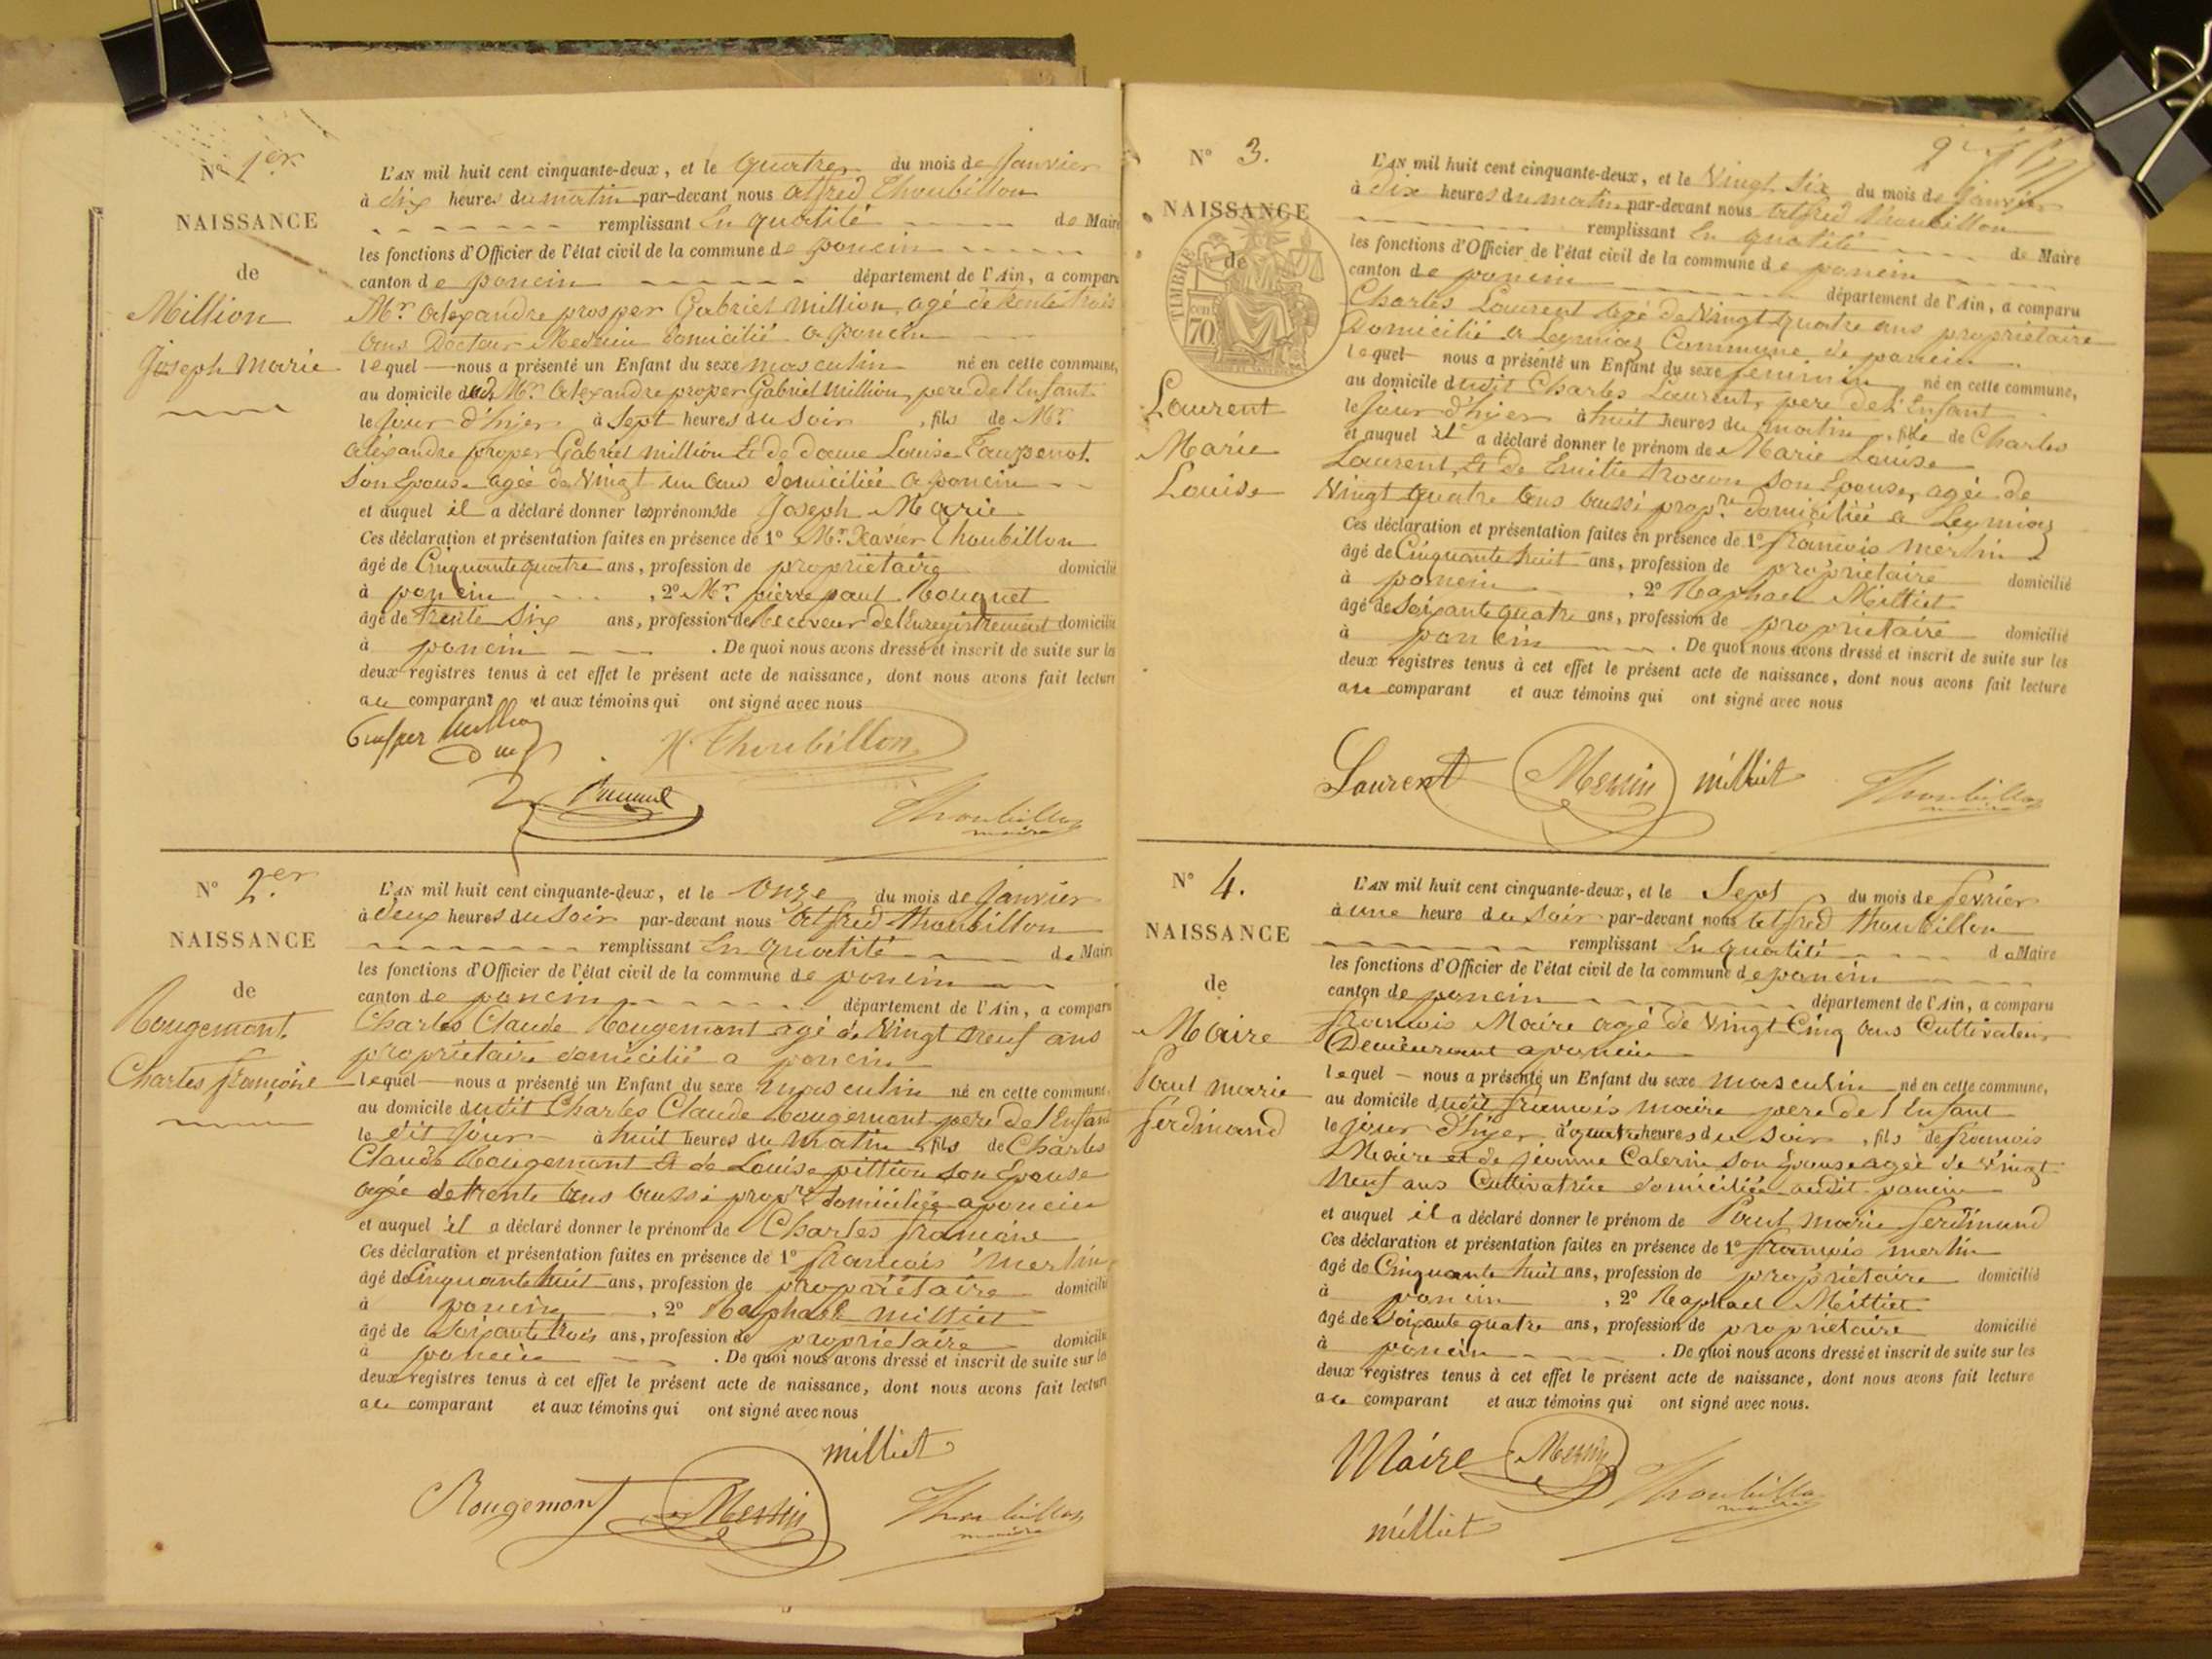 N° 1er
NAISSANCE
de
Million
Joseph Marie
L'AN mil huit cent cinquante-deux, et le quatre du mois de Janvier
à dix heures du matin par-devant nous alfred Thoubillon
remplissant En qualité de Maire
les fonctions d'Officier de l'état civil de la commune de poncin
canton de poncin département de l'Ain, a comparu
Mr. alexandre prosper Gabriel Million agé de trente trois
ans Docteur Medecin domicilié a poncin
lequel nous a présenté un Enfant du sexe masculin né en cette commune,
au domicile dud Mr. alexandre prosper Gabriel Million pere de l'Enfant
le jour d'hier à sept heures du soir, fils de Mr.
alexandre prosper Gabriel million Et de dame Louise
Son Epouse agée de Vingt un ans domiciliée a poncin
et auquel il a déclaré donner les prénoms de Joseph Marie
Ces déclaration et présentation faites en présence de 1° Mr. Xavier Thoubillon
âgé de Cinquante quatre ans, profession de propriétaire domicilié
à poncin, 2° Mr. pierre paul Bouquet
âgé de trente Six ans, profession de Receveur de l'Enregistrement domicilié
à poncin. De quoi nous avons dressé et inscrit de suite sur les
deux registres tenus à cet effet le présent acte de naissance, dont nous avons fait lecture
au comparant et aux témoins qui ont signé avec nous
Prosper Million
X. Thoubillon
Thoubillon
maire
N° 2.er
NAISSANCE
de
Rougemont
Charles françois
L'AN mil huit cent cinquante-deux, et le Onze du mois de Janvier
à deux heures du Soir par-devant nous alfred thoubillon
remplissant En qualité de Maire
les fonctions d'Officier de l'état civil de la commune de poncin
canton de poncin département de l'Ain, a comparu
Charles Claude Rougemont agé de Vingt neuf ans
propriétaire domicilié a poncin
lequel nous a présenté un Enfant du sexe masculin né en cette commune,
au domicile dudit Charles Claude Rougemont pere de l'Enfant
le dit jour à huit heures du matin, fils de Charles
Claude Rougemont Et de Louise pittion son Epouse
agée de trente ans aussi propre domiciliée a poncin
et auquel il a déclaré donner le prénom de Charles françois
Ces déclaration et présentation faites en présence de 1° françois merlin
âgé de Cinquante huit ans, profession de propriétaire domicilié
à poncin, 2° Raphael milliet
âgé de Soixante trois ans, profession de propriétaire domicilié
à poncin. De quoi nous avons dressé et inscrit de suite sur les
deux registres tenus à cet effet le présent acte de naissance, dont nous avons fait lecture
au comparant et aux témoins qui ont signé avec nous
milliet
Rougemont Merlin Thoubillon
maire
N° 3.
NAISSANCE
de
TIMBRE
70
Laurent
Marie
Louise
L'AN mil huit cent cinquante-deux, et le Vingt Six du mois de Janvier
à dix heures du matin par-devant nous alfred thoubillon
remplissant En qualité de Maire
les fonctions d'Officier de l'état civil de la commune de poncin
canton de poncin département de l'Ain, a comparu
Charles Laurent agé de Vingt quatre ans propriétaire
Domicilié a Leymiaz Commune de poncin
lequel nous a présenté un Enfant du sexe feminin né en cette commune,
au domicile dudit Charles Laurent, pere de l'Enfant
le jour d'hier à huit heures du matin, fille de Charles
et auquel il a déclaré donner le prénom de Marie Louise
Laurent, Et de Emilie son Epouse, agée de
Vingt quatre ans aussi propre domiciliée a Leymiaz
Ces déclaration et présentation faites en présence de 1° françois merlin
âgé de Cinquante huit ans, profession de propriétaire domicilié
à poncin, 2° Raphael Milliet
âgé de Soixante quatre ans, profession de propriétaire domicilié
à poncin. De quoi nous avons dressé et inscrit de suite sur les
deux registres tenus à cet effet le présent acte de naissance, dont nous avons fait lecture
au comparant et aux témoins qui ont signé avec nous
Laurent Merlin milliet Thoubillon
N° 4.
NAISSANCE
de
Maire
Paul marie
ferdinand
L'AN mil huit cent cinquante-deux, et le Sept du mois de fevrier
à une heure du soir par-devant nous alfred thoubillon
remplissant En qualité de Maire
les fonctions d'Officier de l'état civil de la commune de poncin
canton de poncin département de l'Ain, a comparu
françois Maire agé de Vingt Cinq ans Cultivateur
Demeurant a poncin
lequel nous a présenté un Enfant du sexe masculin né en cette commune,
au domicile dudit françois maire pere de l'Enfant
le jour d'hier à quatre heures du soir, fils de françois
Maire et de jeanne Caterin son Epouse agée de Vingt
neuf ans Cultivatrice domiciliée audit poncin
et auquel il a déclaré donner le prénom de Paul marie ferdinand
Ces déclaration et présentation faites en présence de 1° françois merlin
âgé de Cinquante huit ans, profession de propriétaire domicilié
à poncin, 2° Raphael Milliet
âgé de Soixante quatre ans, profession de propriétaire domicilié
à poncin. De quoi nous avons dressé et inscrit de suite sur les
deux registres tenus à cet effet le présent acte de naissance, dont nous avons fait lecture
au comparant et aux témoins qui ont signé avec nous.
Maire Merlin Thoubillon
maire
milliet